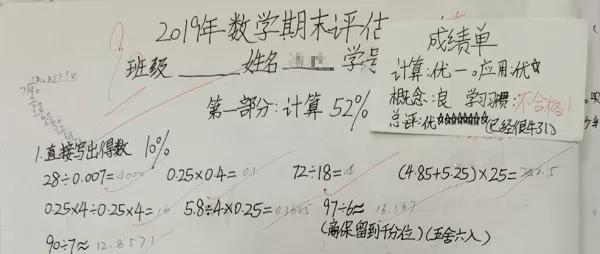 2019年数学期末评估
班级 姓名 学号
成绩单
计算:优一。应用:优☆
概念:良 学习惯:不合格!
总评:优☆☆☆☆☆☆☆(已经很牛31)
第一部分:计算 52%
1.直接写出得数 10%
28÷0.007=4000 0.25×0.4=0.1 72÷18=4 (4.85+5.25)×25=252.5
0.25×4÷0.25×4=16 5.8÷4×0.25=0.3625 97÷6≈16.167
(需保留到千分位)(五舍六入)
90÷7≈12.8571